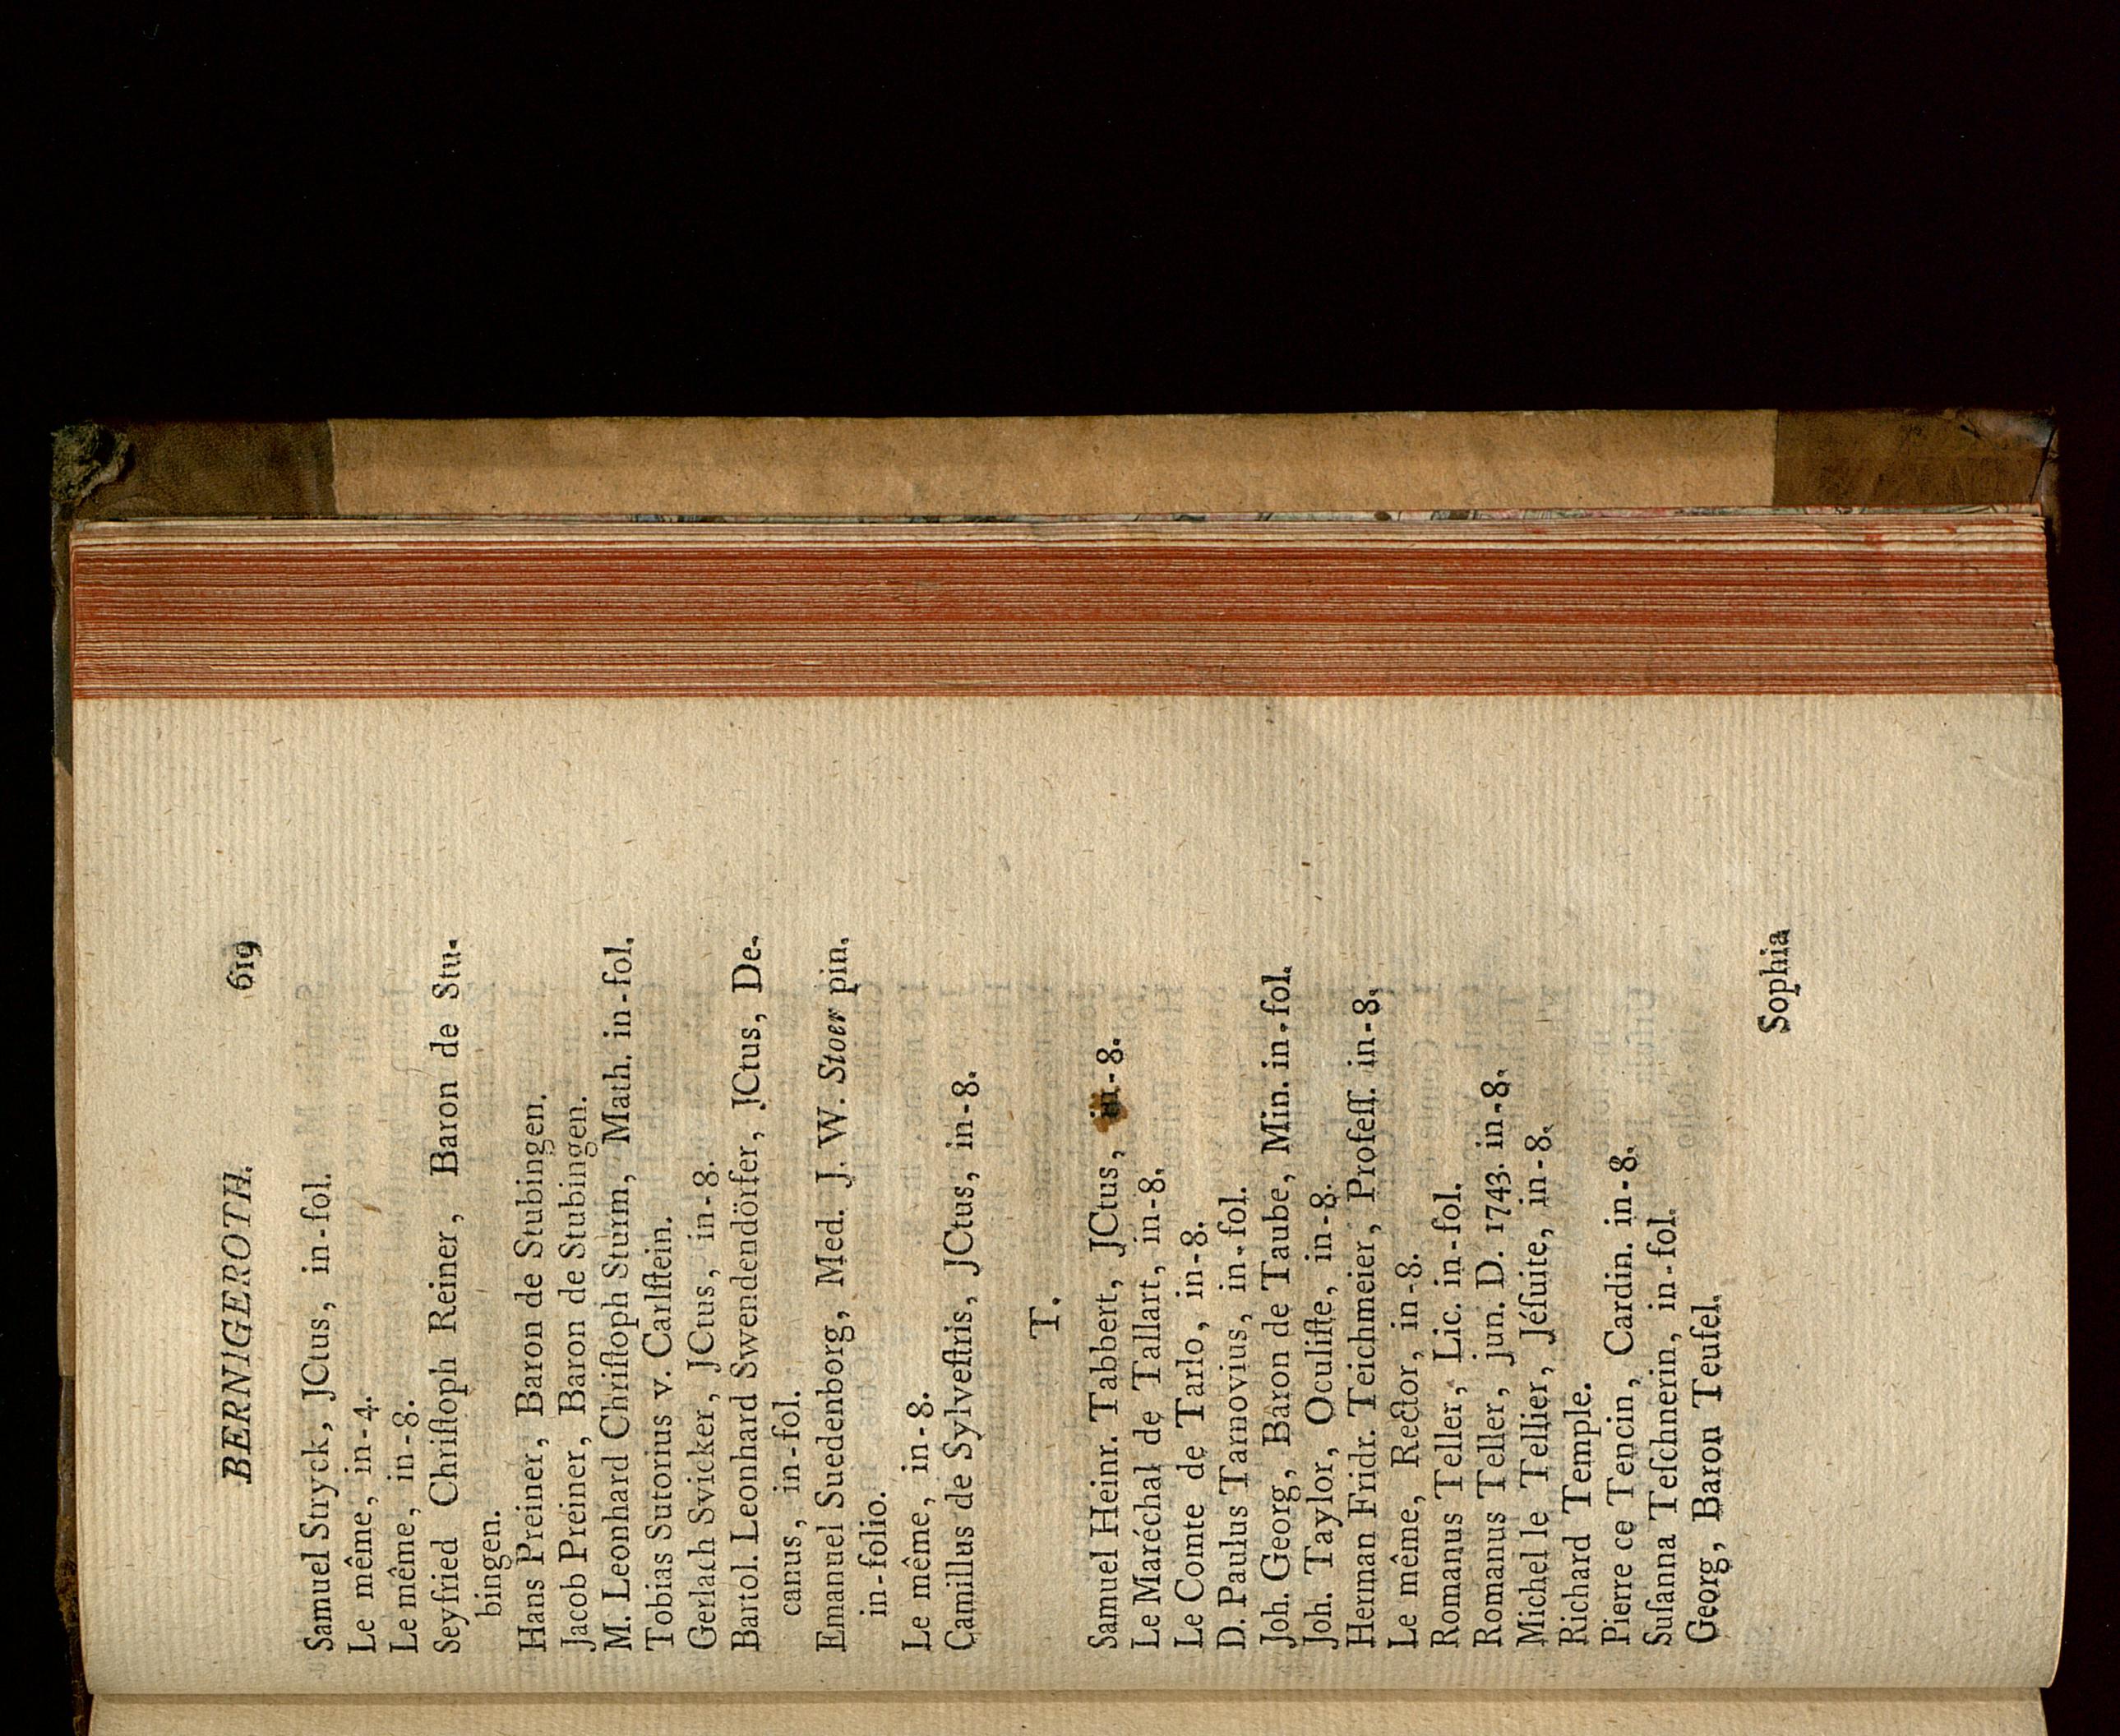 BERNIGEROTH. 619
Samuel Stryck, JCtus, in-fol.
Le même, in-4.
Le même, in-8.
Seyfried Chriſtoph Reiner, Baron de Stu-
bingen.
Hans Preiner, Baron de Stubingen.
Jacob Preiner, Baron de Stubingen.
M. Leonhard Chriſtoph Sturm, Math. in-fol.
Tobias Sutorius v. Carlſtein.
Gerlach Svicker, JCtus, in-8.
Bartol. Leonhard Swendendörfer, JCtus, De-
canus, in-fol.
Emanuel Suedenborg, Med. J. W. Stoer pin.
in-folio.
Le même, in-8.
Camillus de Sylveſtris, JCtus, in-8.
T.
Samuel Heinr. Tabbert, JCtus, in-8.
Le Maréchal de Tallart, in-8.
Le Comte de Tarlo, in-8.
D. Paulus Tarnovius, in-fol.
Joh. Georg, Baron de Taube, Min. in-fol.
Joh. Taylor, Oculiſte, in-8.
Herman Fridr. Teichmeier, Profeſſ. in-8.
Le même, Rector, in-8.
Romanus Teller, Lic. in-fol.
Romanus Teller, jun. D. 1743. in-8.
Michel le Tellier, Jéſuite, in-8.
Richard Temple.
Pierre ce Tencin, Cardin. in-8.
Suſanna Teſchnerin, in-fol.
Georg, Baron Teufel.
Sophia